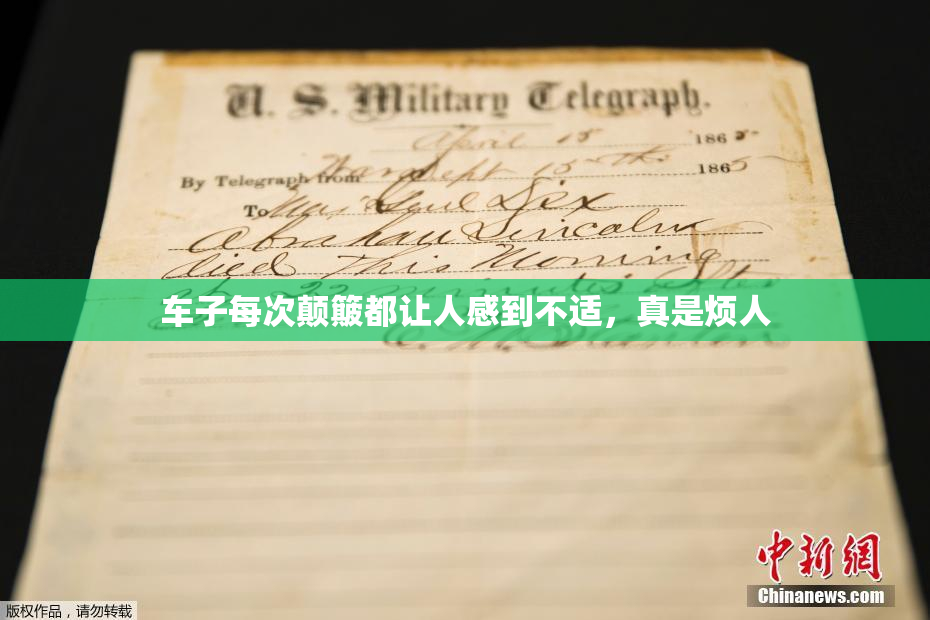 U. S. Military Telegraph.
April 15 1865
By Telegraph from War Dept 15th 1865
To Maj Genl Dix
Abraham Lincoln
died This Morning
at 22 minutes after
车子每次颠簸都让人感到不适，真是烦人
E. M. Stanton
中新網
Chinanews.com
版权作品，请勿转载